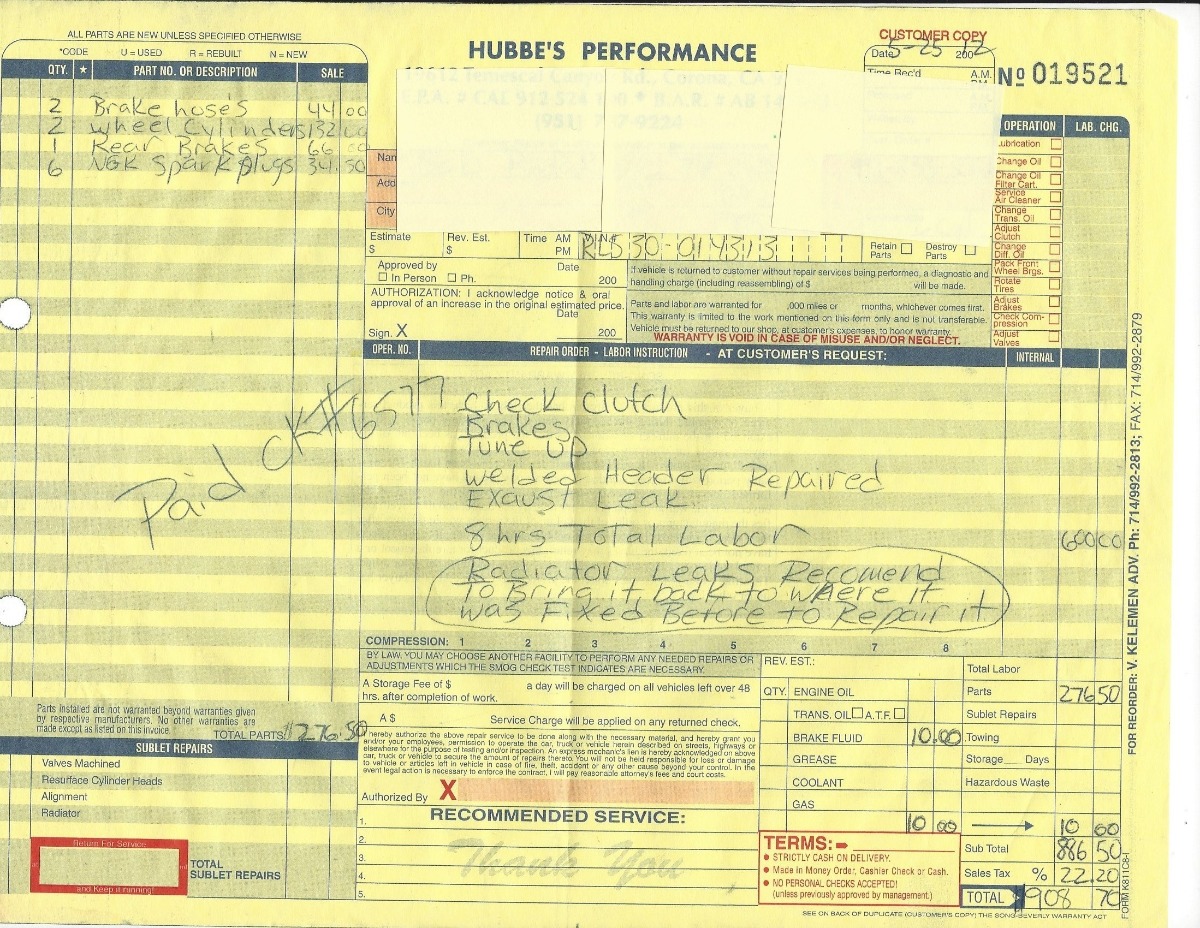 ALL PARTS ARE NEW UNLESS SPECIFIED OTHERWISE
*CODE U = USED R = REBUILT N = NEW
QTY. ★ PART NO. OR DESCRIPTION SALE
2 Brake hose's 44 00
2 wheel Cylinders 132 00
1 Rear Brakes 66 00
6 NGK Spark plugs 34.50
HUBBE'S PERFORMANCE
CUSTOMER COPY
Date 5-25 12 200
Time Rec'd A.M.
Nº 019521
Nam
Add
City
Estimate $
Rev. Est. $
Time AM PM
RL530-014313
Retain Parts
Destroy Parts
Approved by Date
In Person Ph. 200
AUTHORIZATION: I acknowledge notice & oral
approval of an increase in the original estimated price.
Date
Sign. X 200
If vehicle is returned to customer without repair services being performed, a diagnostic and
handling charge (including reassembling) of $ will be made.
Parts and labor are warranted for ,000 miles or months, whichever comes first.
This warranty is limited to the work mentioned on this form only and is not transferable.
Vehicle must be returned to our shop, at customer's expenses, to honor warranty.
WARRANTY IS VOID IN CASE OF MISUSE AND/OR NEGLECT.
OPERATION LAB. CHG.
Lubrication
Change Oil
Change Oil
Filter Cart.
Service
Air Cleaner
Change
Trans. Oil
Adjust
Clutch
Change
Diff. Oil
Pack Front
Wheel Brgs.
Rotate
Tires
Adjust
Brakes
Check Com-
pression
Adjust
Valves
OPER. NO. REPAIR ORDER - LABOR INSTRUCTION - AT CUSTOMER'S REQUEST: INTERNAL
Paid CK#6577
Check Clutch
Brakes
Tune Up
welded Header Repaired
Exaust Leak
8 hrs Total Labor 600.00
Radiator Leaks Recomend
To Bring it back to where it
was Fixed Before to Repair it
COMPRESSION: 1 2 3 4 5 6 7 8
BY LAW, YOU MAY CHOOSE ANOTHER FACILITY TO PERFORM ANY NEEDED REPAIRS OR
ADJUSTMENTS WHICH THE SMOG CHECK TEST INDICATES ARE NECESSARY.
A Storage Fee of $ a day will be charged on all vehicles left over 48
hrs. after completion of work.
A $ Service Charge will be applied on any returned check.
I hereby authorize the above repair service to be done along with the necessary material, and hereby grant you
and/or your employees, permission to operate the car, truck or vehicle herein described on streets, highways or
elsewhere for the purpose of testing and/or inspection. An express mechanic's lien is hereby acknowledged on above
car, truck or vehicle to secure the amount of repairs thereto. You will not be held responsible for loss or damage
to vehicle or articles left in vehicle in case of fire, theft, accident or any other cause beyond your control. In the
event legal action is necessary to enforce the contract, I will pay reasonable attorney's fees and court costs.
Authorized By X
RECOMMENDED SERVICE:
1.
2.
3.
4.
5.
Thank You
Parts installed are not warranted beyond warranties given
by respective manufacturers. No other warranties are
made except as listed on this invoice.
TOTAL PARTS $276.50
SUBLET REPAIRS
Valves Machined
Resurface Cylinder Heads
Alignment
Radiator
Return For Service
and Keep it running!
TOTAL
SUBLET REPAIRS
REV. EST.:
QTY. ENGINE OIL
TRANS. OIL A.T.F.
BRAKE FLUID 10.00
GREASE
COOLANT
GAS
10 00
TERMS:
• STRICTLY CASH ON DELIVERY.
• Made in Money Order, Cashier Check or Cash.
• NO PERSONAL CHECKS ACCEPTED!
(unless previously approved by management.)
Total Labor
Parts 276 50
Sublet Repairs
Towing
Storage Days
Hazardous Waste
10 00
Sub Total 886 50
Sales Tax % 22.20
TOTAL $908 70
SEE ON BACK OF DUPLICATE (CUSTOMER'S COPY) THE SONG-BEVERLY WARRANTY ACT
FORM K811C8-I
FOR REORDER: V. KELEMEN ADV. Ph: 714/992-2813; FAX: 714/992-2879